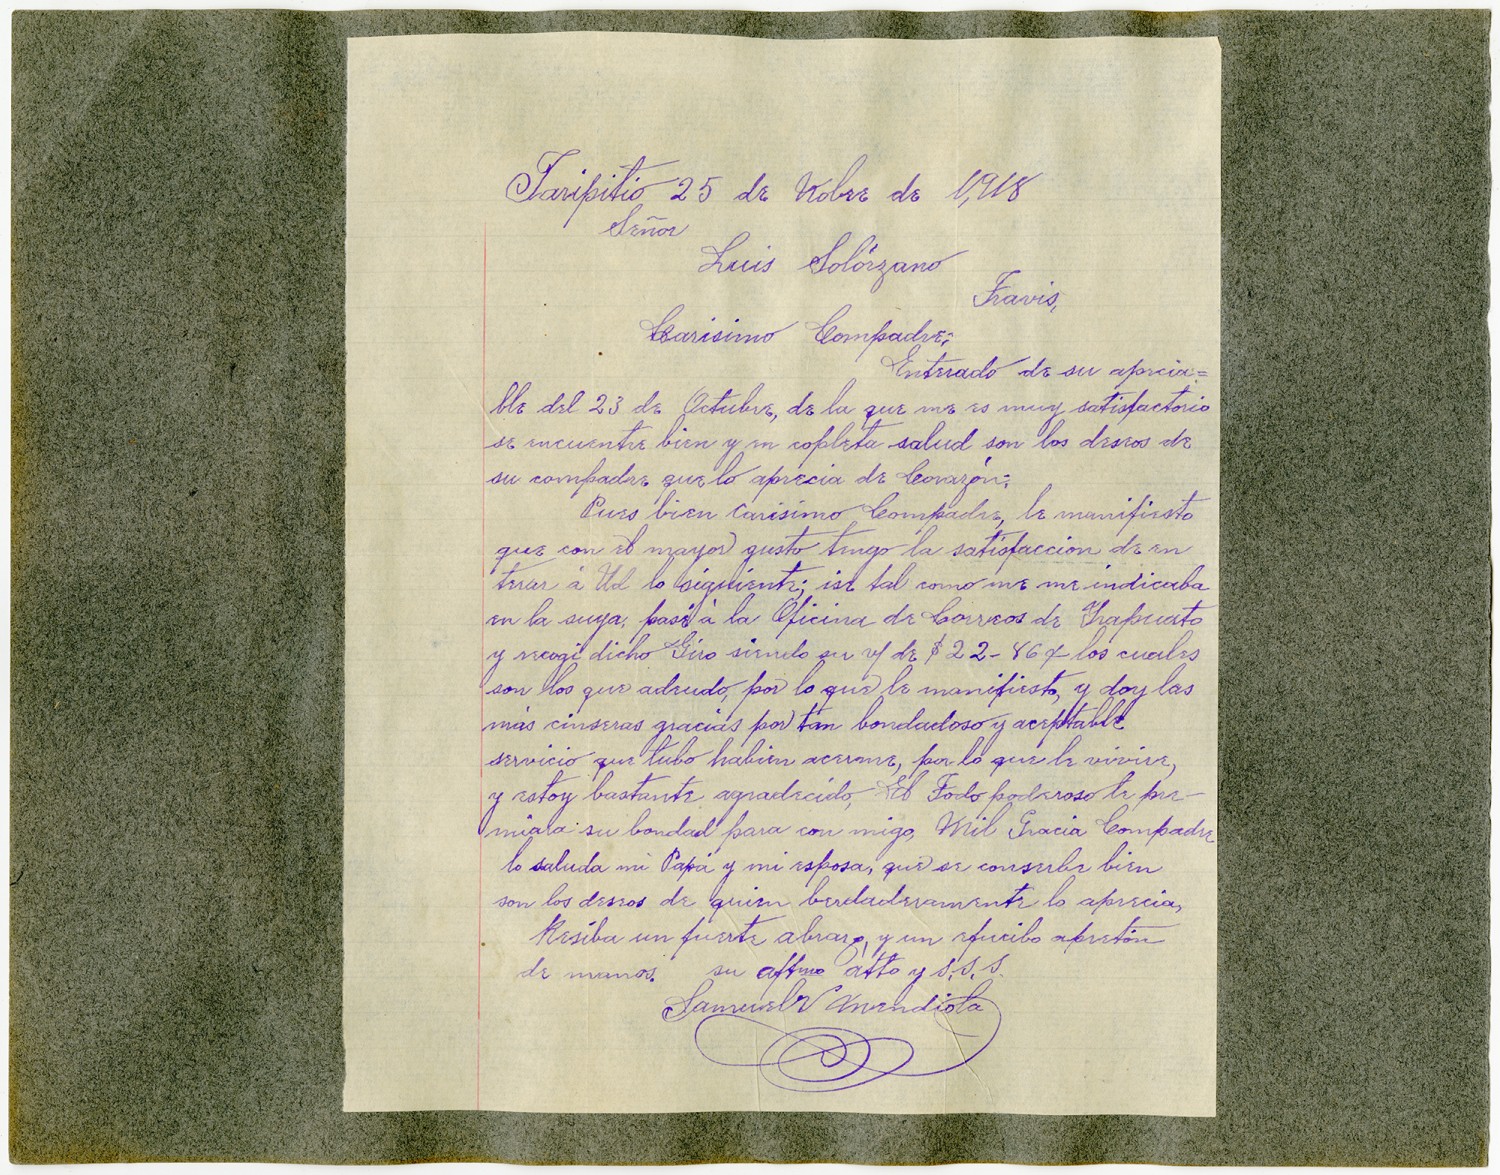 Taripitio 25 de Nobre de 1,918
Señor
Luis Solórzano
Travis,
Carisimo Compadre;
Enterado de su aprecia=
ble del 23 de Octubre, de la que me es muy satisfactorio
se encuentre bien y en copleta salud son los deseos de
su compadre que lo aprecia de Corazón;
Pues bien Carisimo Compadre, le manifiesto
que con el mayor gusto tengo la satisfaccion de en
terar á Ud lo siguiente; tal como me me indicaba
en la suya, pasé á la Oficina de Correos de Irapuato
y recogi dicho Giro siendo su v/ de $22-86 los cuales
son los que adeudo, por lo que le manifiesto, y doy las
más cinseras gracias por tan bondadoso y aceptable
servicio que tubo habien acerme, por lo que le vivire,
y estoy bastante agradecido, El Todo poderoso te pre-
miara su bondad para con migo, Mil Gracia Compadre
lo saluda mi Papá y mi esposa, que se conserbe bien
son los deseos de quien berdaderamente lo aprecia,
Resiba un fuerte abrazo, y un efucibo apretón
de manos. su affmo atto y S.S.S.
Samuel V Mendiola